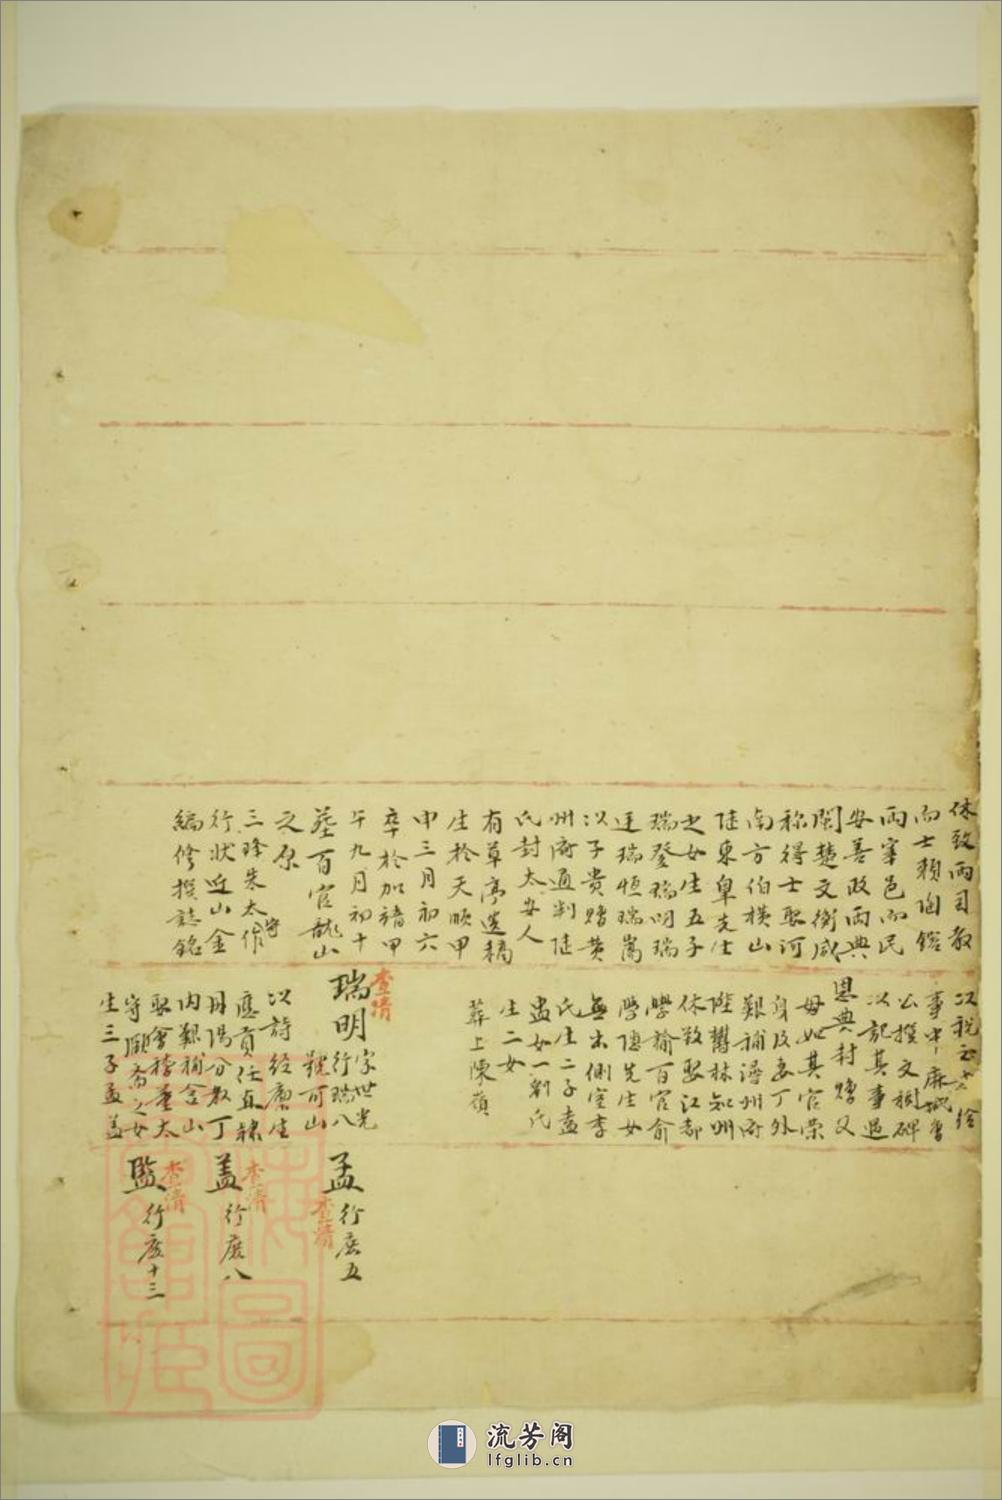 休致兩司教
而士賴陶鎔
兩宰邑而民
安善政兩典
閩楚文衡咸
稱得士娶河
南方伯橫山
陸東皐先生
之女生五子
瑞登瑞明瑞
廷瑞恒瑞嵩
以子貴贈黃
州府通判陸
氏封太安人
有草亭遺稿
生於天順甲
申三月初六
卒於加靖甲
午九月初十
葬百官龍山
之原
三峰朱太守作
行狀近山金
編修撰誌銘
事中
公撰文樹碑
以記其事遇
恩典封贈父
母如其官榮
身及妻丁外
艱補潯州府
陞鬱林知州
休致娶江都
學諭百官俞
學隱先生女
無出側室李
氏生二子盍
盅女一劉氏
生二女
葬上陳嶺
查清
瑞明
字世光
行瑞八
號可山
以詩經廩生
應貢任直隸
丹陽分教丁
內艱補含山
娶會稽董太
守願齋之女
生三子孟蓋
孟
行慶五
查清
蓋
行慶八
查清
監
行慶十三
查清
流芳阁
lfglib.cn